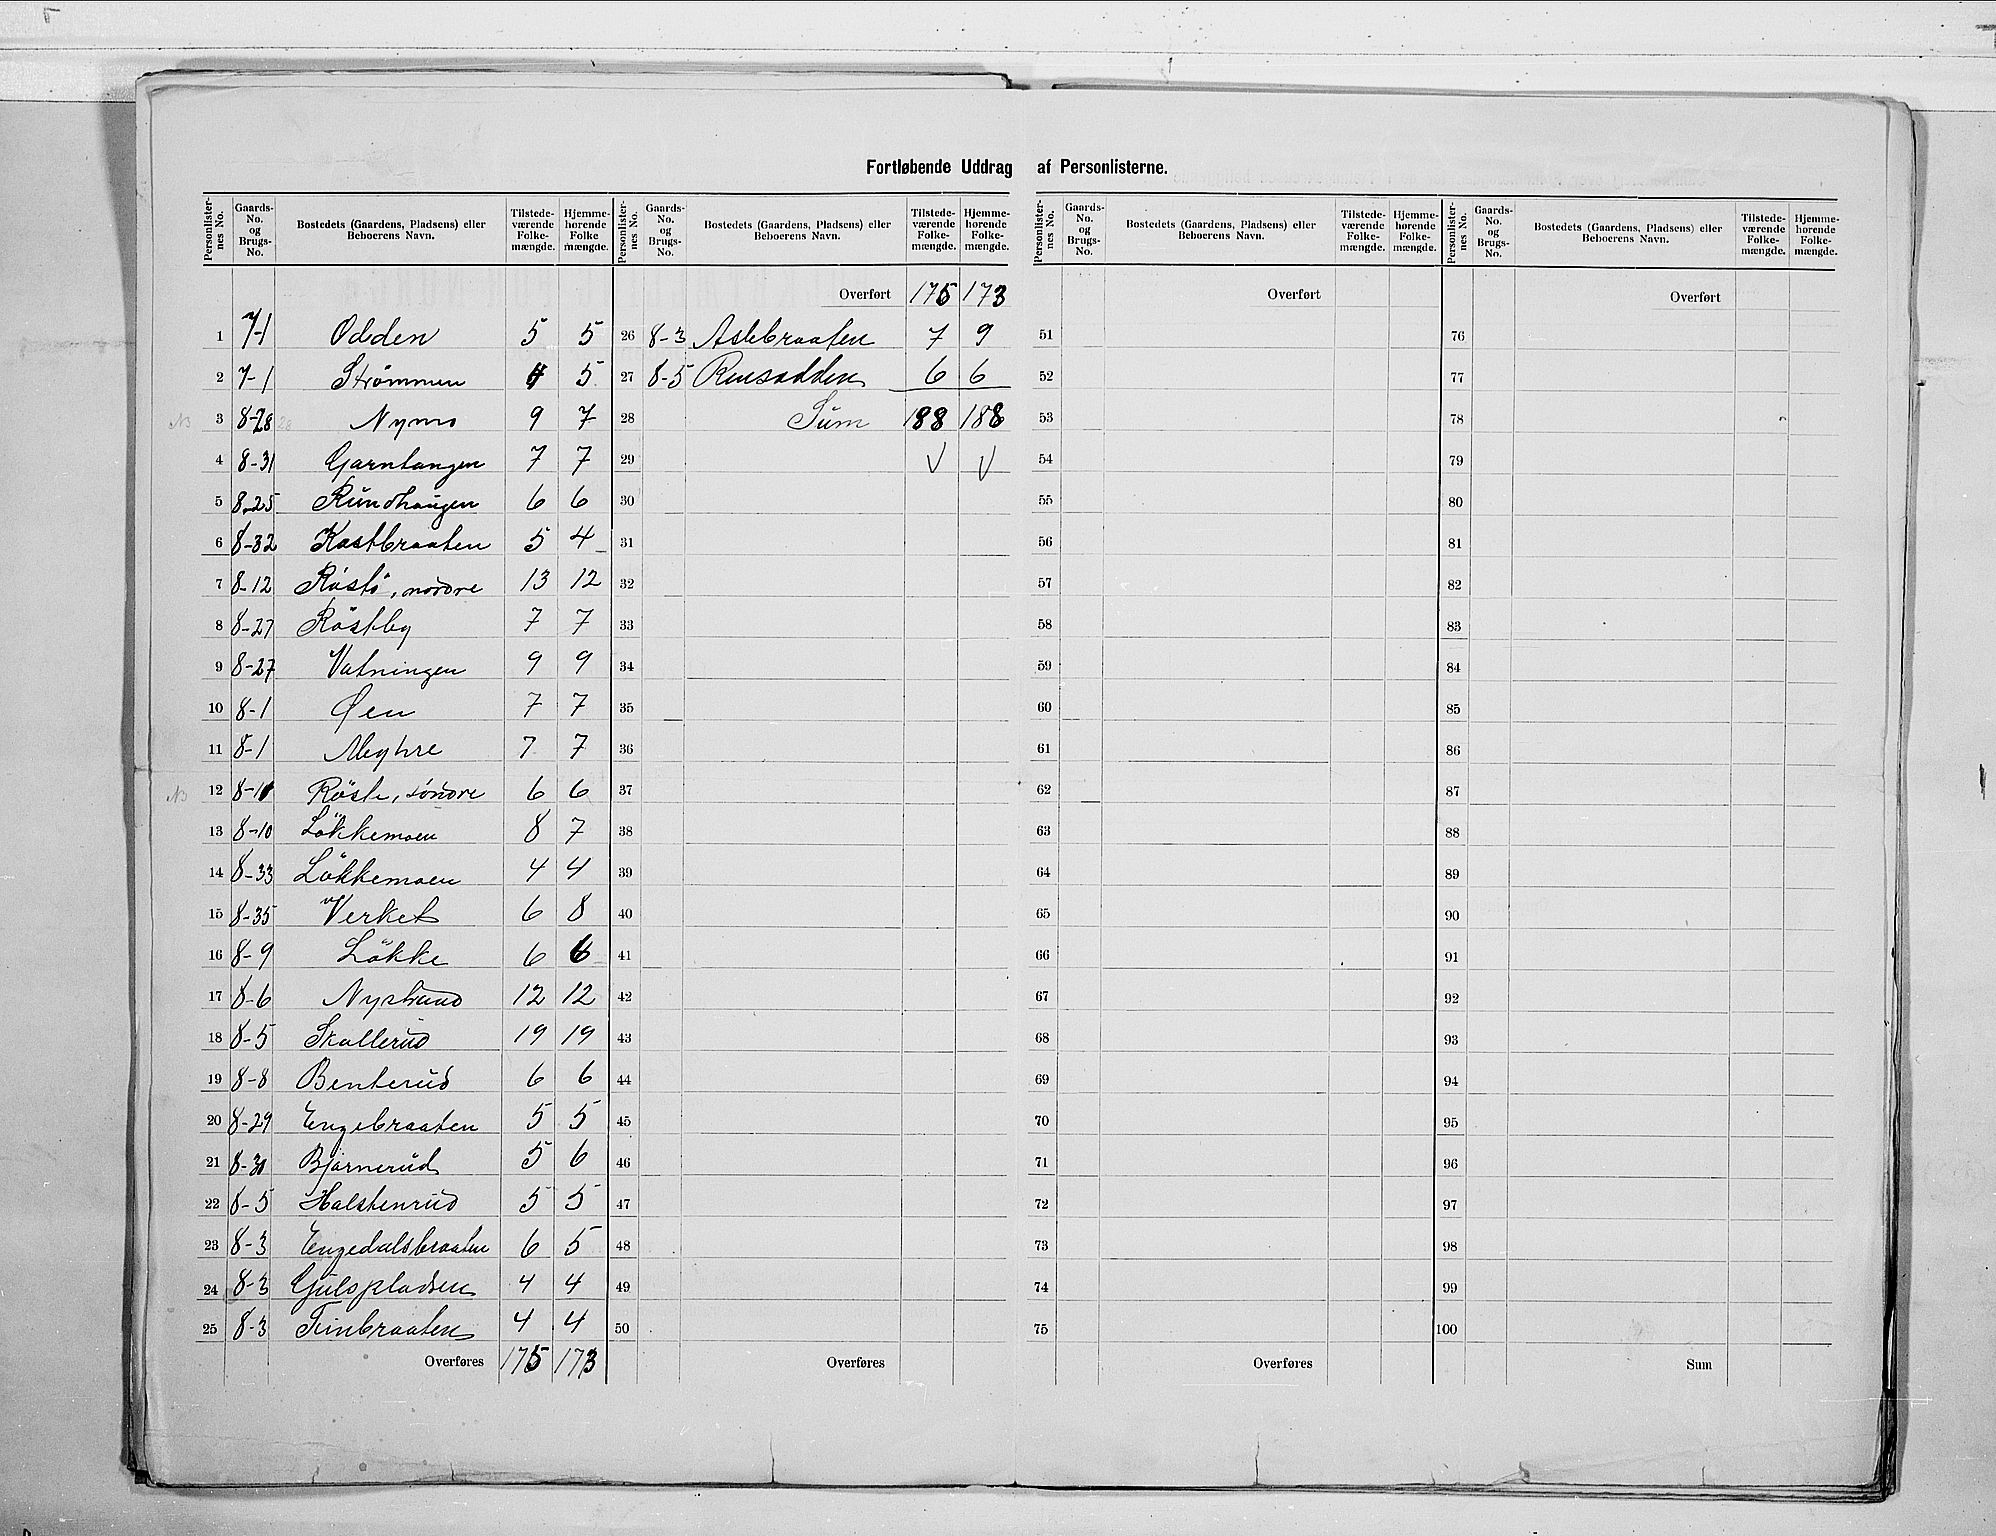 Fortløbende Uddrag af Personlisterne.
Personlisternes No. Gaards-No. og Brugs-No. Bostedets (Gaardens, Pladsens) eller Beboerens Navn. Tilstedeværende Folkemængde. Hjemmehørende Folkemængde.
1 7-1 Odden 5 5
2 7-1 Strömmen 4 5
3 8-28 Nymo 9 7
4 8-31 Garntangen 7 7
5 8-25 Rundhaugen 6 6
6 8-32 Kastbraaten 5 4
7 8-12 Röstö, nordre 13 12
8 8-27 Röstby 7 7
9 8-27 Vatningen 9 9
10 8-1 Øen 7 7
11 8-1 7 7
12 Röste, söndre 6 6
13 8-10 Lökkemoen 8 7
14 8-33 Lökkemoen 4 4
15 8-35 Verket 6 8
16 8-9 Lökke 6 6
17 8-6 Nystrand 12 12
18 8-5 Skollerud 19 19
19 8-8 Benterud 6 6
20 8-29 Engebraaten 5 5
21 Björnerud 5 6
22 8-5 Halstenrud 5 5
23 8-3 Engedalsbraaten 6 5
24 8-3 Gulspladsen 4 4
25 8-3 Finbraaten 4 4
Overføres 175 173
Personlisternes No. Gaards-No. og Brugs-No. Bostedets (Gaardens, Pladsens) eller Beboerens Navn. Tilstedeværende Folkemængde. Hjemmehørende Folkemængde.
Overført 175 173
26 8-3 Aslebraaten 7 9
27 8-5 Rensodden 6 6
28 Sum 188 188
29 V V
30
31
32
33
34
35
36
37
38
39
40
41
42
43
44
45
46
47
48
49
50
Overføres
Personlisternes No. Gaards-No. og Brugs-No. Bostedets (Gaardens, Pladsens) eller Beboerens Navn. Tilstedeværende Folkemængde. Hjemmehørende Folkemængde.
Overført
51
52
53
54
55
56
57
58
59
60
61
62
63
64
65
66
67
68
69
70
71
72
73
74
75
Overføres
Personlisternes No. Gaards-No. og Brugs-No. Bostedets (Gaardens, Pladsens) eller Beboerens Navn. Tilstedeværende Folkemængde. Hjemmehørende Folkemængde.
Overført
76
77
78
79
80
81
82
83
84
85
86
87
88
89
90
91
92
93
94
95
96
97
98
99
100
Sum